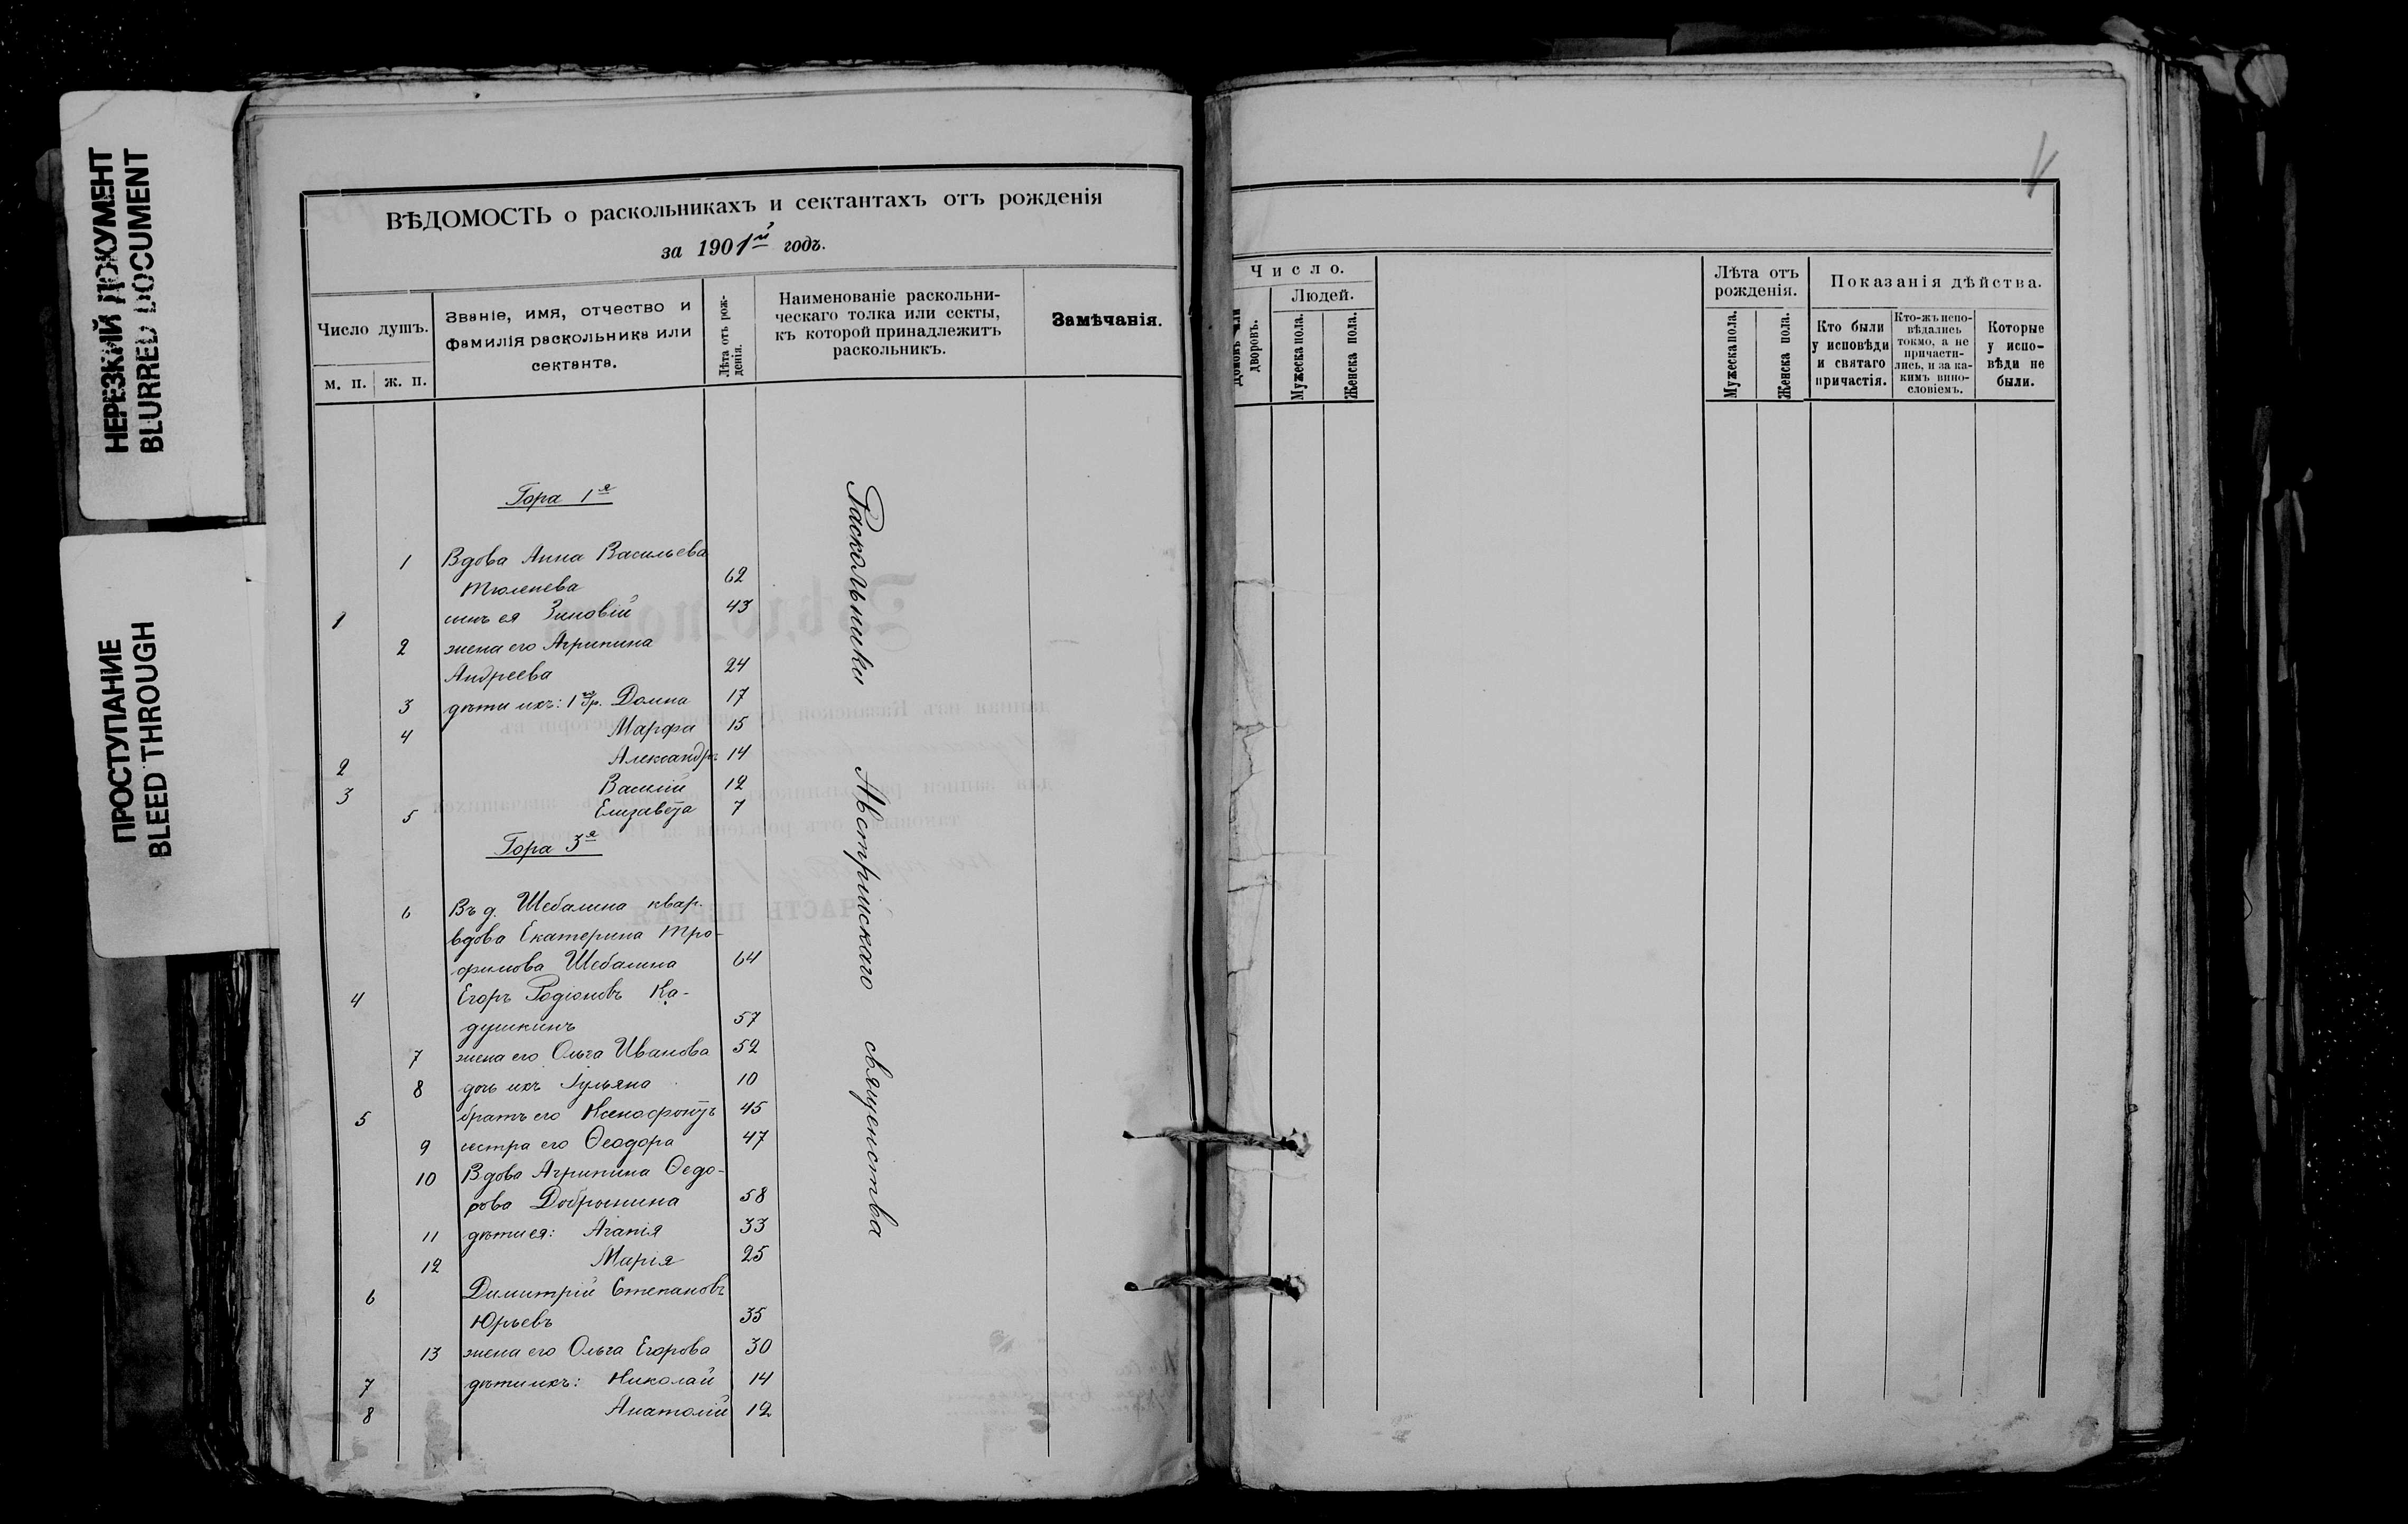 НЕРЕЗКИЙ ДОКУМЕНТ
BLURRED DOCUMENT
ПРОСТУПАНИЕ
BLEED THROUGH
ВѢДОМОСТЬ о раскольникахъ и сектантахъ отъ рожденія
за 1901й годъ.
Число душъ.
м. п. ж. п.
Званіе, имя, отчество и
фамилія раскольника или
сектанта.
Лѣта отъ рож-
денія.
Наименованіе раскольни-
ческаго толка или секты,
къ которой принадлежитъ
раскольникъ.
Замѣчанія.
Гора 1я
1 Вдова Анна Васильева
Тюленева 62
1 сынъ ея Зиновій 43
2 жена его Агрипина
Андреева 24
3 дѣти ихъ: 1го бр. Домна 17
4 Марфа 15
2 Александръ 14
3 Василій 12
5 Елизавета 7
Гора 3я
6 Въ д. Шебалина квар.
вдова Екатерина Тро-
фимова Шебалина 64
4 Егоръ Родіоновъ Ка-
душкинъ 57
7 жена его Ольга Иванова 52
8 дочь ихъ Іульяна 10
5 братъ его Ксенофонтъ 45
9 сестра его Ѳеодора 47
10 Вдова Агрипина Ѳедо-
рова Добрынина 58
11 дѣти ея: Агапія 33
12 Марія 25
6 Димитрій Степановъ
Юрьевъ 35
13 жена его Ольга Егорова 30
7 дѣти ихъ: Николай 14
8 Анатолій 12
Раскольники Австрійскаго священства
Число.
Домовъ или
дворовъ.
Людей.
Мужеска пола.
Женска пола.
Лѣта отъ
рожденія.
Мужеска пола.
Женска пола.
Показанія дѣйства.
Кто были
у исповѣди
и святаго
причастія.
Кто-жъ испо-
вѣдались
токмо, а не
причасти-
лись, и за ка-
кимъ вино-
словіемъ.
Которые
у испо-
вѣди не
были.